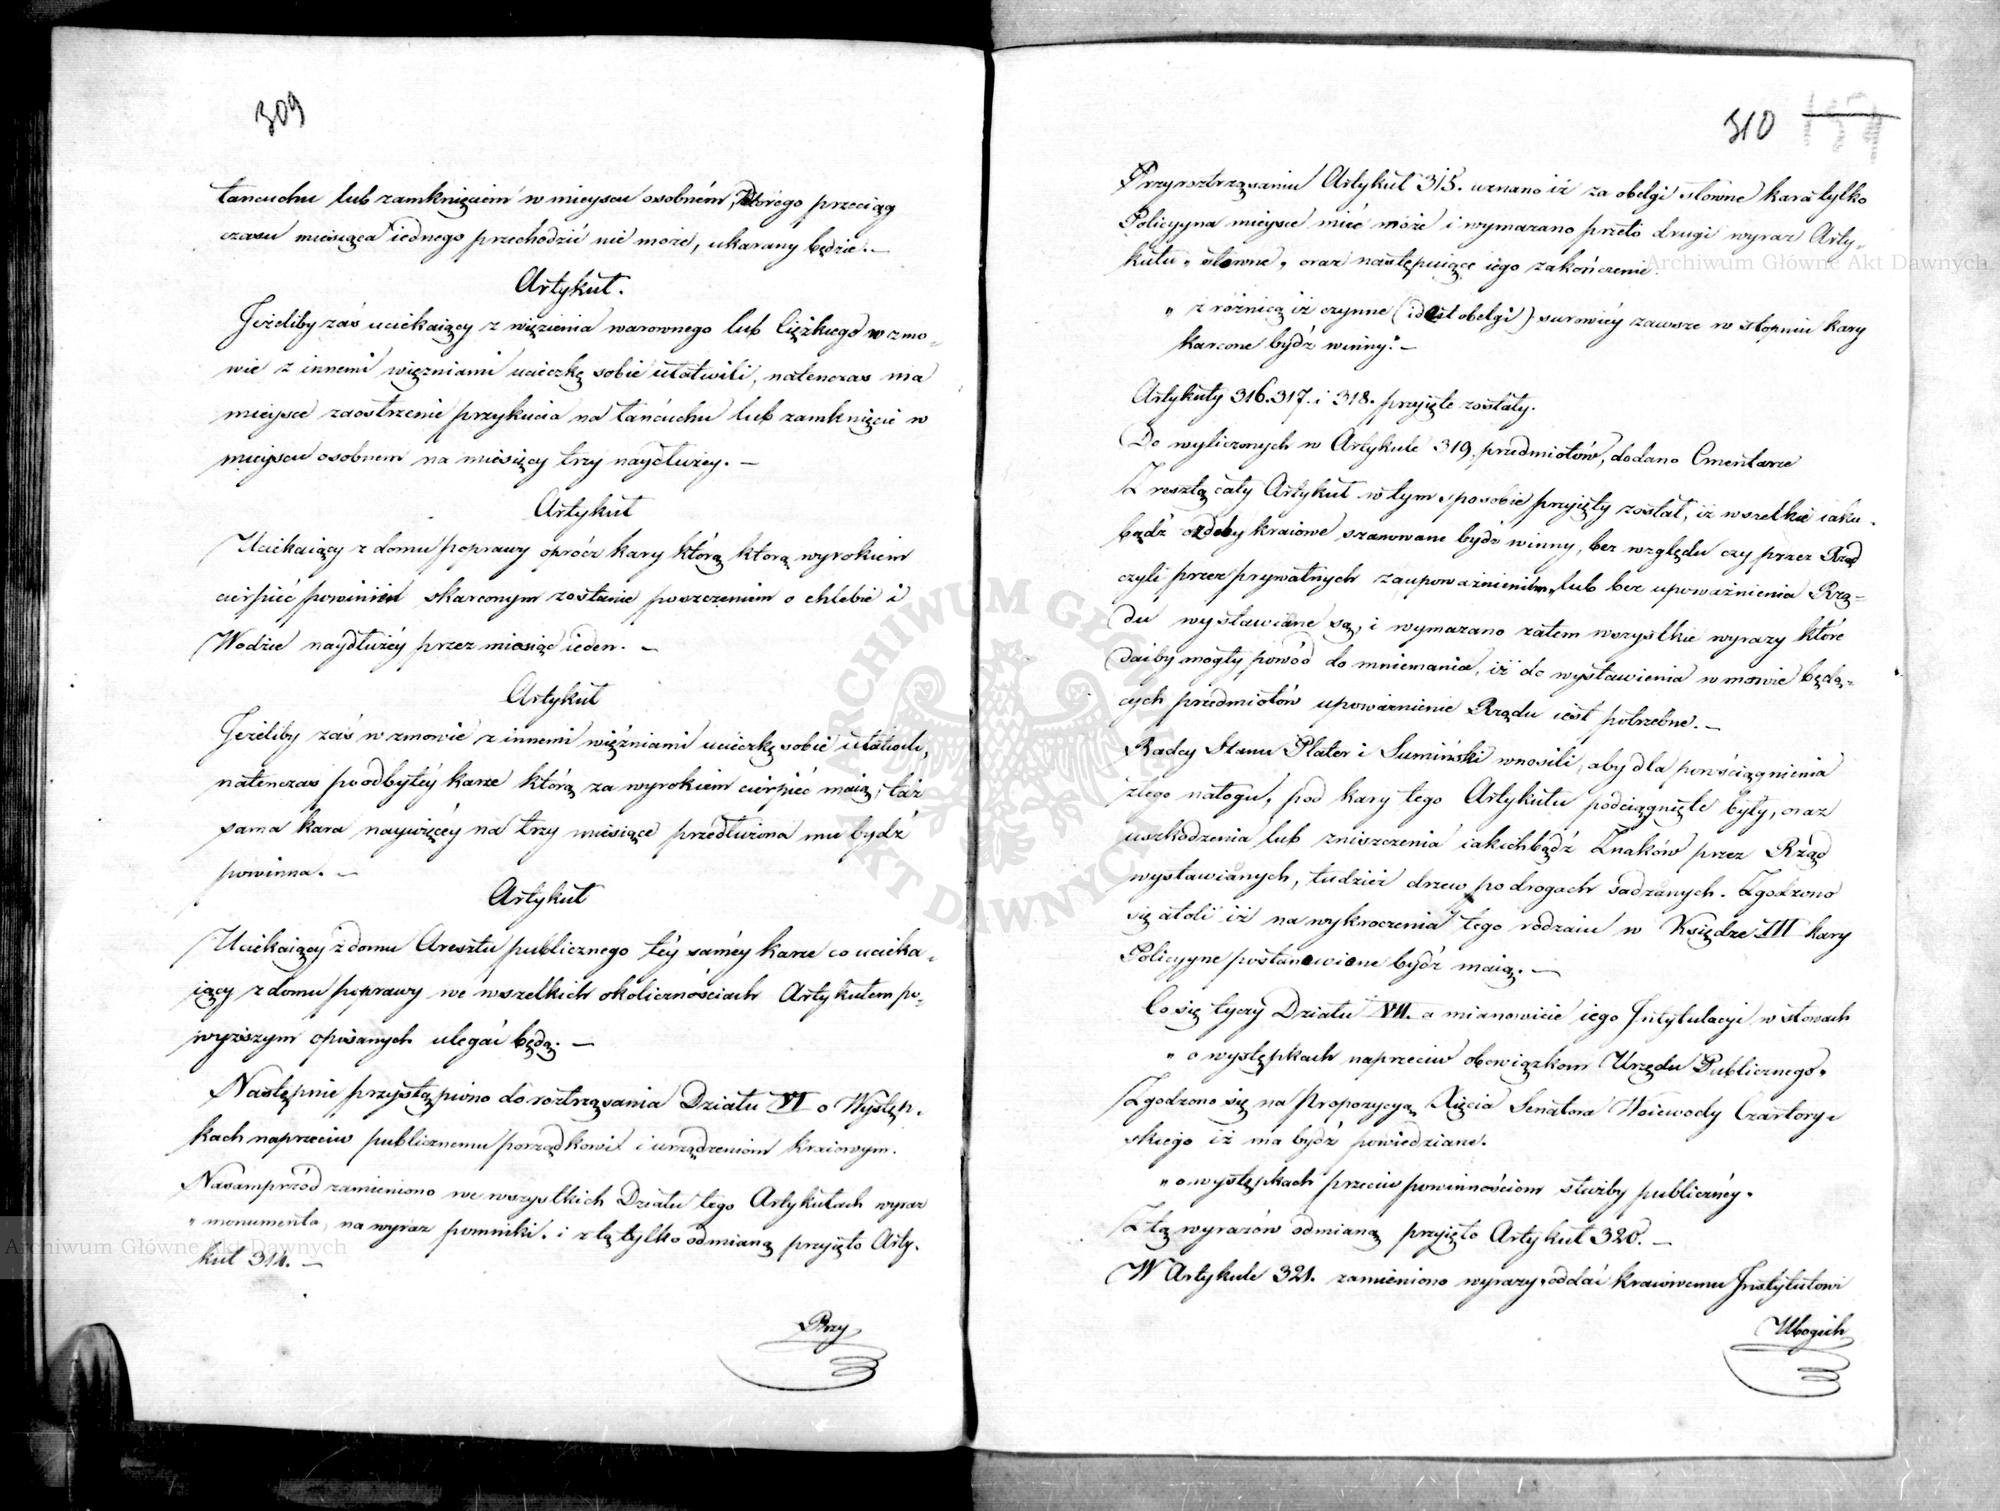 309
łancuchu lub zamknięciem w mieyscu osobném, którego przeciąg
czasu miesiąca iednego przechodzić nie może, ukarany będzie. –
Artykuł.
Jeżeliby zaś uciekaiący z więzienia warownego lub ciężkiego w zmo-
wie z innemi więzniami ucieczkę sobie ułatwili, natenczas ma
mieysce zaostrzenie przykucia na łańcuchu lub zamknięcie w
mieyscu osobnem na miesięcy trzy naydłużey. –
Artykuł
Uciekaiący z domu poprawy oprócz kary którą którą wyrokiem
cierpieć powinien skarconym zostanie poszczeniem o chlebie i
Wodzie naydłużéy przez miesiąc ieden. –
Artykuł
Jeżeliby zaś w zmowie z innemi więźniami ucieczkę sobie ułatwili,
natenczas po odbytéy karze którą za wyrokiem cierpieć maią, taż
sama kara naywięcéy na trzy miesiące przedłużona mu bydź
powinna. –
Artykuł
Uciekaiący z domu Aresztu publicznego téy saméy karze co ucieka-
iący z domu poprawy we wszelkich okolicznościach Artykułem po-
wyższym opisanych ulegać będą. –
Następnie przystąpiono do roztrząsania Działu VI o Występ-
kach naprzeciw publicznemu porządkowi i urządzeniom kraiowym.
Nasamprzód zamieniono we wszystkich Działu tego Artykułach wyraz
„ monumenta, na wyraz pomniki. i z tą tylko odmianą przyięto Arty-
kuł 314. –
Przy
310
Przy roztrząsaniu Artykuł 315. uznano iż za obelgi słowne kara tylko
Policyyna mieysce mieć może i wymazano przeto drugi wyraz Arty-
kułu „ słowne „ oraz następuiące iego zakończenie.
„ z różnicą iż czynne (idest obelgi) surowiéy zawsze w stopniu kary
karcone bydź winny." –
Artykuły 316. 317. i 318. przyięte zostały.
Do wyliczonych w Artykule 319. przedmiotów, dodano Cmentarze
Z resztą cały Artykuł w tym sposobie przyięty został, iż wszelkie iako-
bądź ozdoby kraiowe szanowane bydź winny, bez względu czy przez Rząd
czyli przez prywatnych z upoważnieniem, lub bez upoważnienia Rzą-
du wystawiane są, i wymazano zatem wszystkie wyrazy które
daiby mogły powód do mniemania, iż do wystawienia w mowie będą-
cych przedmiotów upoważnienie Rządu iest potrzebne. –
Radcy Stanu Plater i Sumiński wnosili, aby dla powściągnienia
złego nałogu, pod kary tego Artykułu podciągnięte były, oraz
uszkodzenia lub zniszczenia iakichbądź Znaków przez Rząd
wystawianych, tudzież drzew po drogach sadzanych. Zgodzono
się atoli iż na wykroczenia tego rodzaiu w Księdze III kary
Policyyne postanowione bydź maią. –
Co się tyczy Działu VII. a mianowicie iego Intytulacyi w słowach
„ o występkach naprzeciw obowiązkom Urzędu Publicznego „
Zgodzono się na Propozycyą Xięcia Senatora Woiewody Czartory-
skiego iż ma bydź powiedziane.
„ o występkach przeciw powinnościom służby publicznéy „
Z tą wyrazów odmianą przyięto Artykuł 320. –
W Artykule 321. zamieniono wyrazy „ oddać kraiowemu Instytutowi
Ubogich
Archiwum Główne Akt Dawnych
Archiwum Główne Akt Dawnych
ARCHIWUM GŁÓWNE AKT DAWNYCH